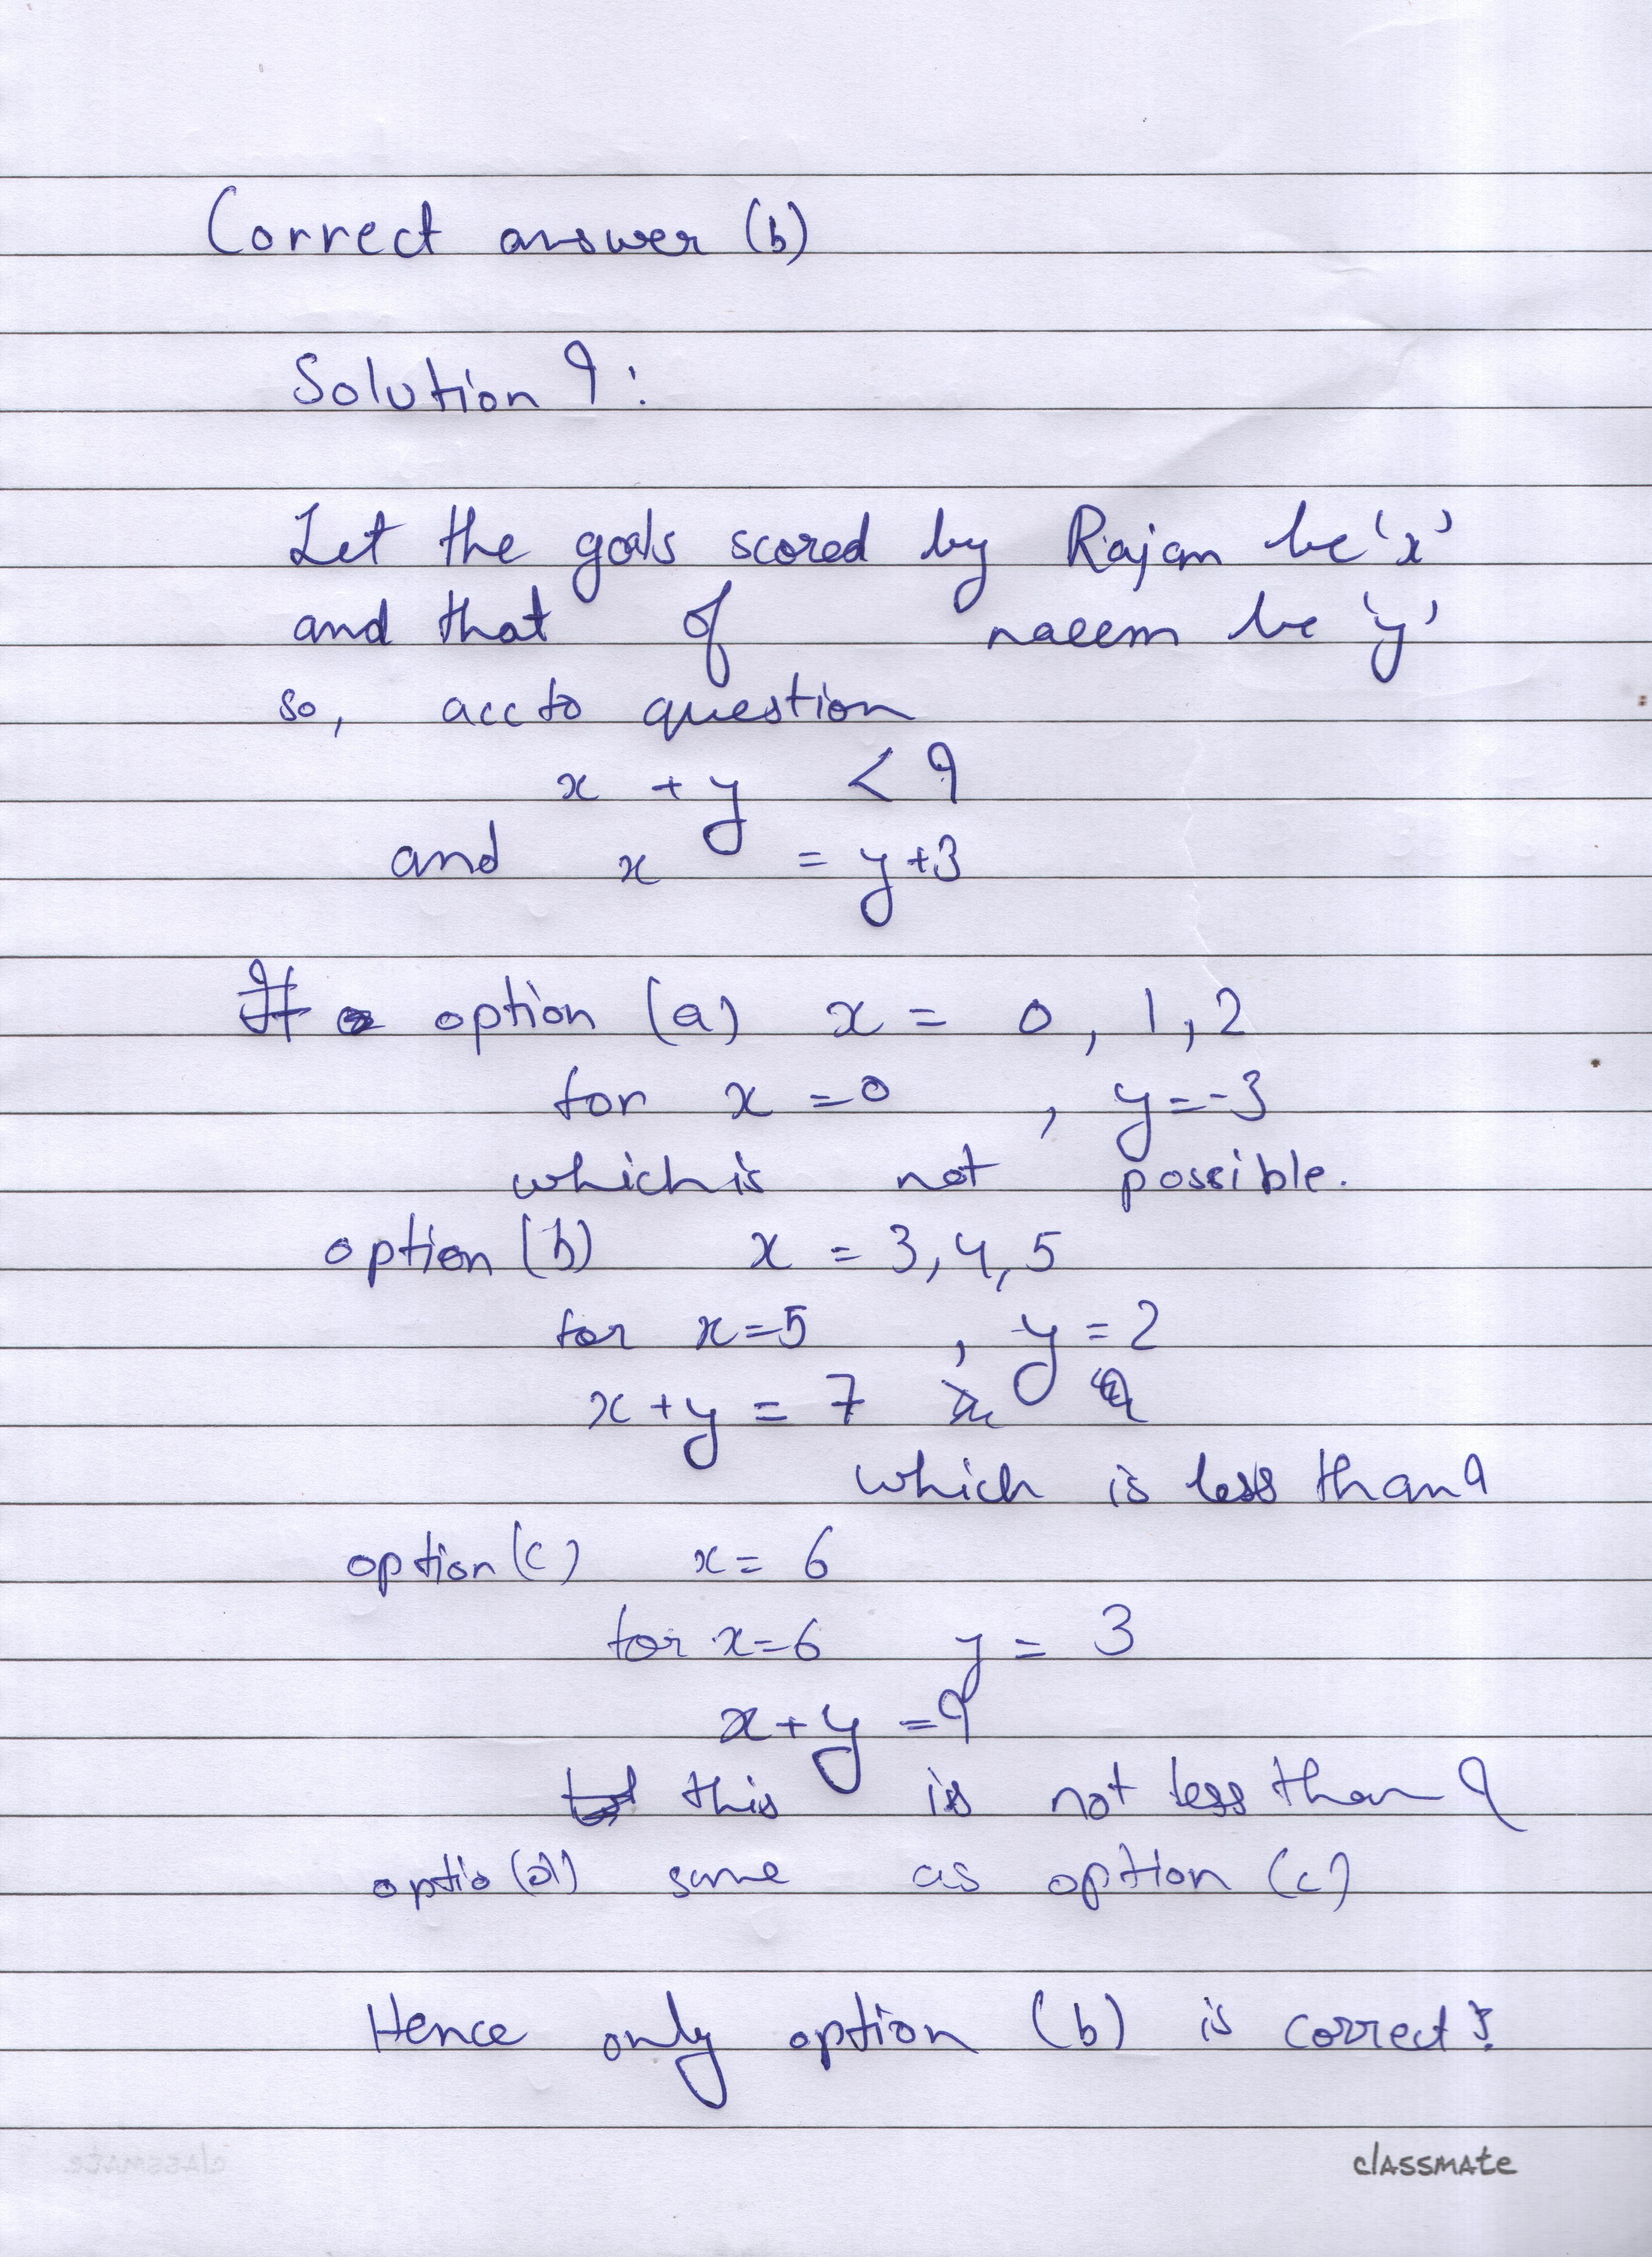 Correct answer (b)
Solution 9:
Let the goals scored by Rajan be 'x'
and that of naeem be 'y'
so, acc to question
x + y < 9
and x = y+3
If option (a) x = 0, 1, 2
for x = 0, y = -3
which is not possible.
option (b) x = 3, 4, 5
for x = 5, y = 2
x + y = 7
which is less than 9
option (c) x = 6
for x = 6 y = 3
x + y = 9
this is not less than 9
optio (d) same as option (c)
Hence only option (b) is correct.
classmate